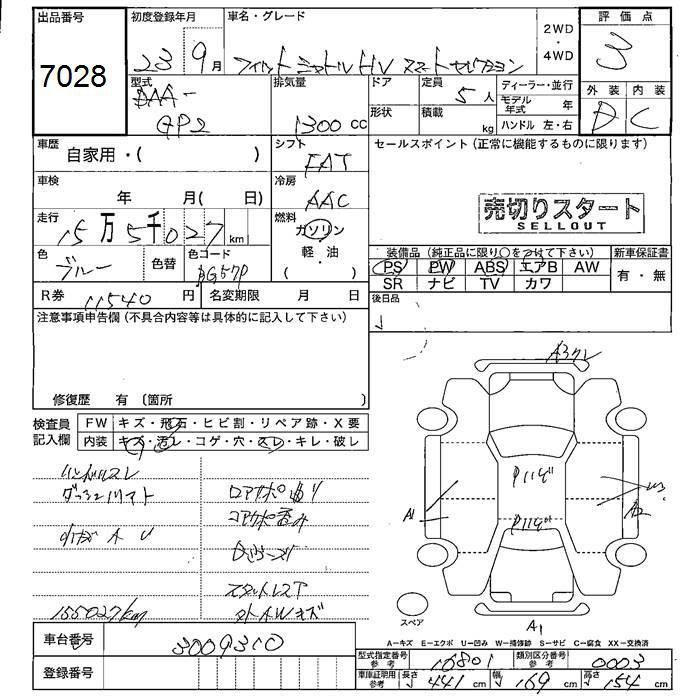 出品番号
7028
初度登録年月
23 9月
車名・グレード
フィットシャトルHV スマートセレクション
2WD
・
4WD
評価点
3
外装 内装
D C
型式
DAA-
GP2
排気量
1300 cc
ドア
形状
定員
5人
積載
kg
ディーラー・並行
モデル年式 年
ハンドル 左・右
車歴
自家用・( )
シフト
FAT
セールスポイント(正常に機能するものに限ります)
車検
年 月( 日)
冷房
AAC
売切りスタート
SELLOUT
走行
15万5千027km
燃料
ガソリン
軽・油
( )
色
ブルー
色替
色コード
BG57P
装備品(純正品に限り○をつけて下さい)
PS PW ABS エアB AW
SR ナビ TV カワ
新車保証書
有・無
R券 11540円
名変期限 月 日
後日品
注意事項申告欄(不具合内容等は具体的に記入して下さい)
修復歴 有〔箇所 〕
検査員
記入欄
FW キズ・飛石・ヒビ割・リペア跡・X要
内装 キズ・汚レ・コゲ・穴・スレ・キレ・破レ
ハンドルスレ
155027km
A1
A2
A1
スペア
A―キズ E―エクボ U―凹み W―補修跡 S―サビ C―腐食 XX―交換済
車台番号 3009310
登録番号
型式指定番号
参考
16801
類別区分番号
参考
0003
車庫証明用
参考
長さ 441cm
幅 169cm
高さ 154cm